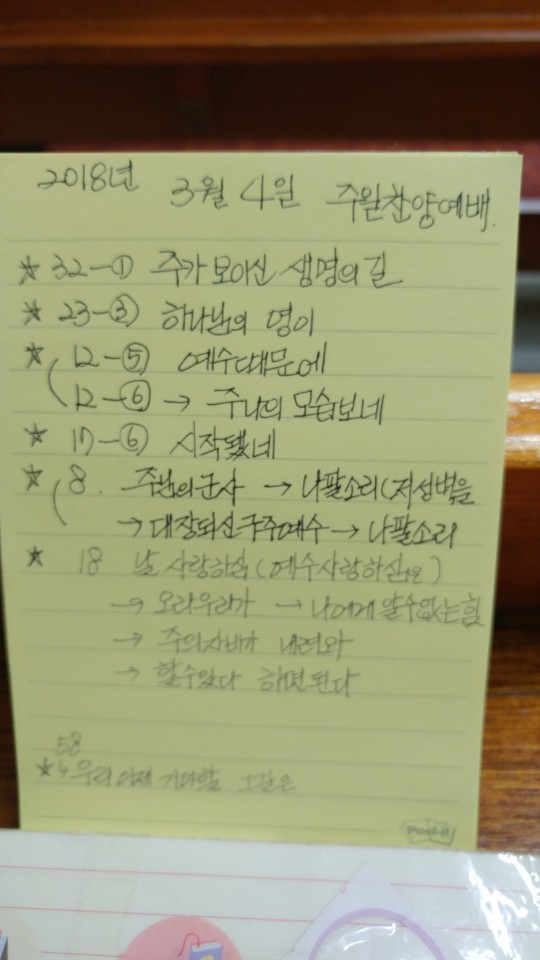 2018년 3월 4일 주일찬양예배.
☆ 32-① 주가 보이신 생명의 길
☆ 23-③ 하나님의 영이
☆ 12-⑤ 예수때문에
12-⑥ → 주나의 모습보네
☆ 17-⑥ 시작됐네
☆ 8. 주님의군사 → 나팔소리(저성벽을
→ 대장되신구주예수 → 나팔소리
☆ 18 날 사랑하심(예수사랑하심은)
→ 오라우리가 → 나에게 알수없는힘
→ 주의자비가 내려와
→ 할수있다 하면된다
58
☆ 우리 기대할
Post-it